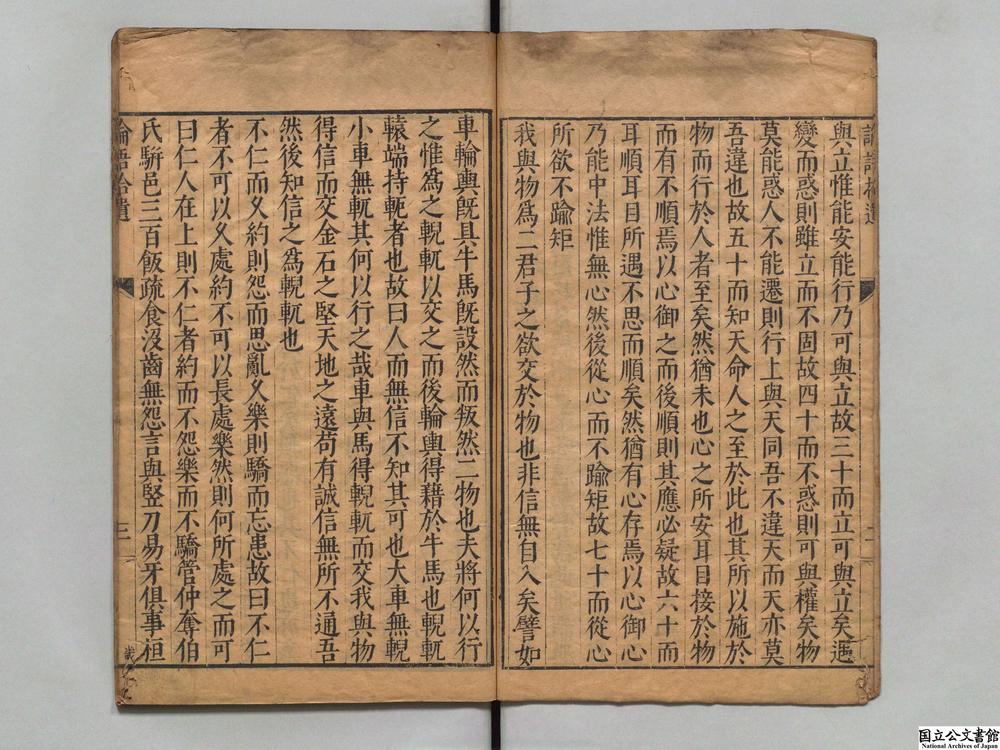 論語拾遺
二
與立惟能安能行乃可與立故三十而立可與立矣遇
變而惑則雖立而不固故四十而不惑則可與權矣物
莫能惑人不能遷則行上與天同吾不違天而天亦莫
吾違也故五十而知天命人之至於此也其所以施於
物而行於人者至矣然猶未也心之所安耳目接於物
而有不順焉以心御之而後順則其應必疑故六十而
耳順耳目所遇不思而順矣然猶有心存焉以心御心
乃能中法惟無心然後從心而不踰矩故七十而從心
所欲不踰矩
我與物爲二君子之欲交於物也非信無自入矣譬如
車輪輿旣具牛馬旣設然而叛然二物也夫將何以行
之惟爲之輗軏以交之而後輪輿得藉於牛馬也輗軏
轅端持軛者也故曰人而無信不知其可也大車無輗
小車無軏其何以行之哉車與馬得輗軏而交我與物
得信而交金石之堅天地之遠苟有誠信無所不通吾
然後知信之爲輗軏也
不仁而乆約則怨而思亂乆樂則驕而忘患故曰不仁
者不可以乆處約不可以長處樂然則何所處之而可
曰仁人在上則不仁者約而不怨樂而不驕管仲奪伯
氏駢邑三百飯疏食沒齒無怨言與竪刀易牙俱事桓
論語拾遺
三
国立公文書館
National Archives of Japan